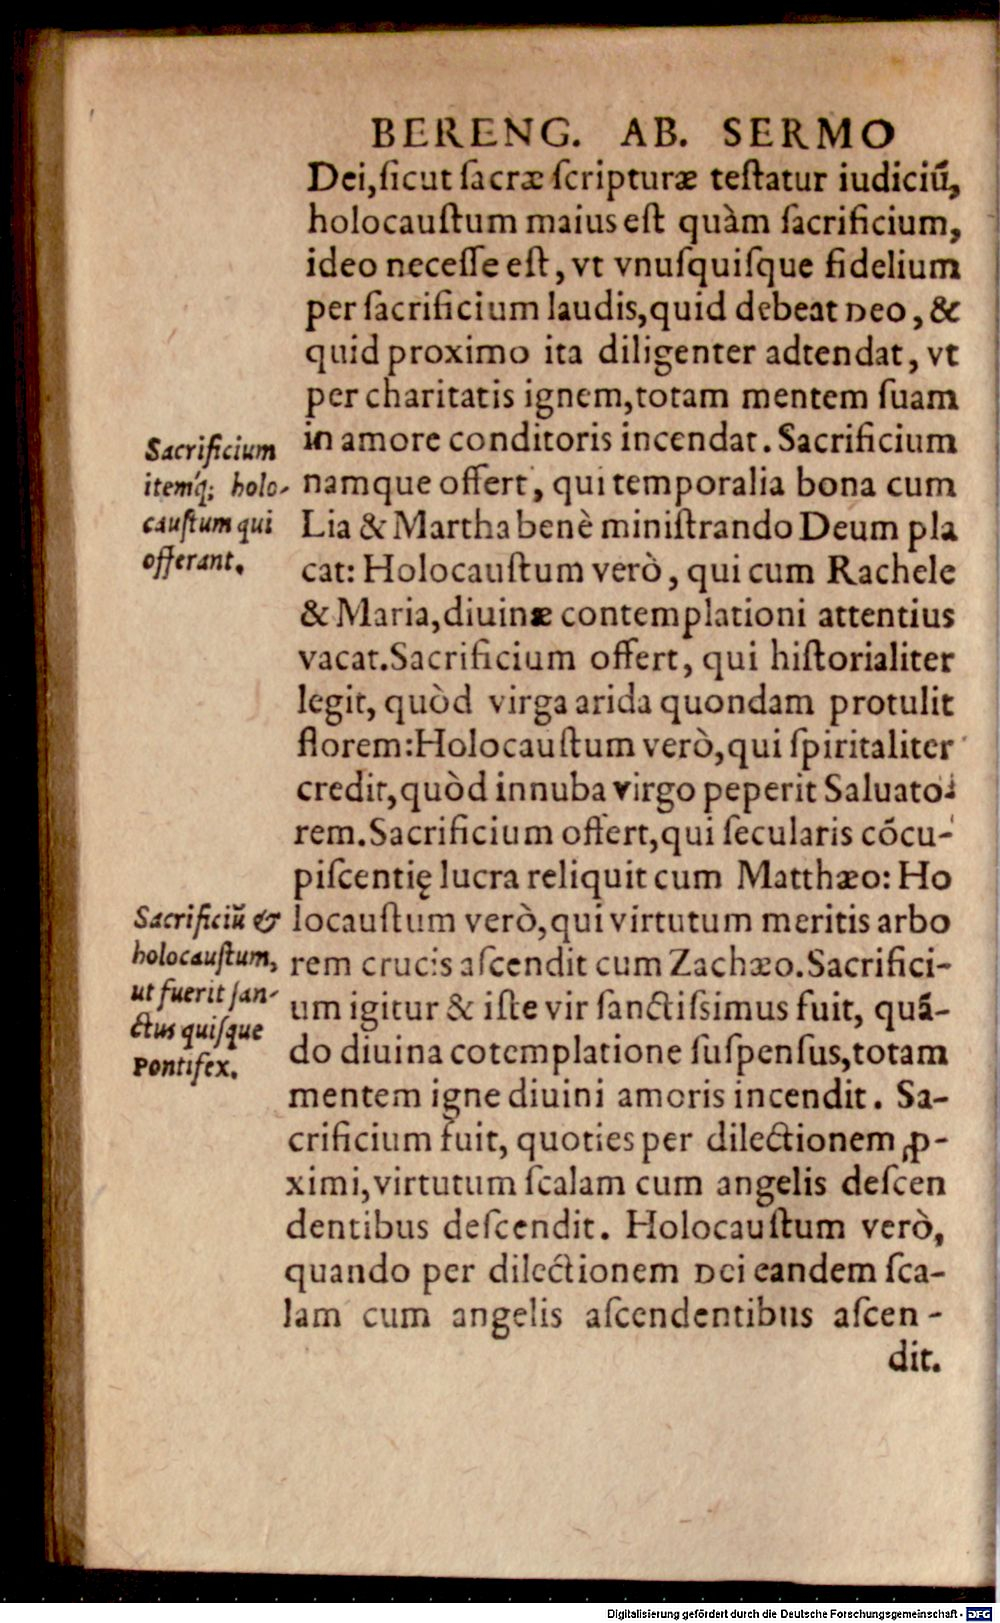 BERENG. AB. SERMO
Dei,ſicut ſacræ ſcripturæ teſtatur iudiciũ,
holocauſtum maius eſt quàm ſacrificium,
ideo neceſſe eſt, vt vnuſquiſque fidelium
per ſacrificium laudis,quid debeat Deo, &
quid proximo ita diligenter adtendat, vt
per charitatis ignem,totam mentem ſuam
in amore conditoris incendat. Sacrificium
namque offert, qui temporalia bona cum
Lia & Martha benè miniſtrando Deum pla
cat: Holocauſtum verò, qui cum Rachele
& Maria,diuinæ contemplationi attentius
vacat.Sacrificium offert, qui hiſtorialiter
legit, quòd virga arida quondam protulit
florem:Holocauſtum verò,qui ſpiritaliter
credit,quòd innuba virgo peperit Saluato-
rem.Sacrificium offert,qui ſecularis cõcu-
piſcentię lucra reliquit cum Matthæo: Ho
locauſtum verò,qui virtutum meritis arbo
rem crucis aſcendit cum Zachæo.Sacrifici-
um igitur & iſte vir ſanctiſsimus fuit, quã-
do diuina cotemplatione ſuſpenſus,totam
mentem igne diuini amoris incendit. Sa-
crificium fuit, quoties per dilectionem ꝓ-
ximi,virtutum ſcalam cum angelis deſcen
dentibus deſcendit. Holocauſtum verò,
quando per dilectionem Dei eandem ſca-
lam cum angelis aſcendentibus aſcen-
dit.
Sacrificium
itemq́; holo-
cauſtum qui
offerant.
Sacrificiũ &
holocauſtum,
ut fuerit ſan-
ctus quiſque
Pontifex.
Digitalisierung gefördert durch die Deutsche Forschungsgemeinschaft - DFG